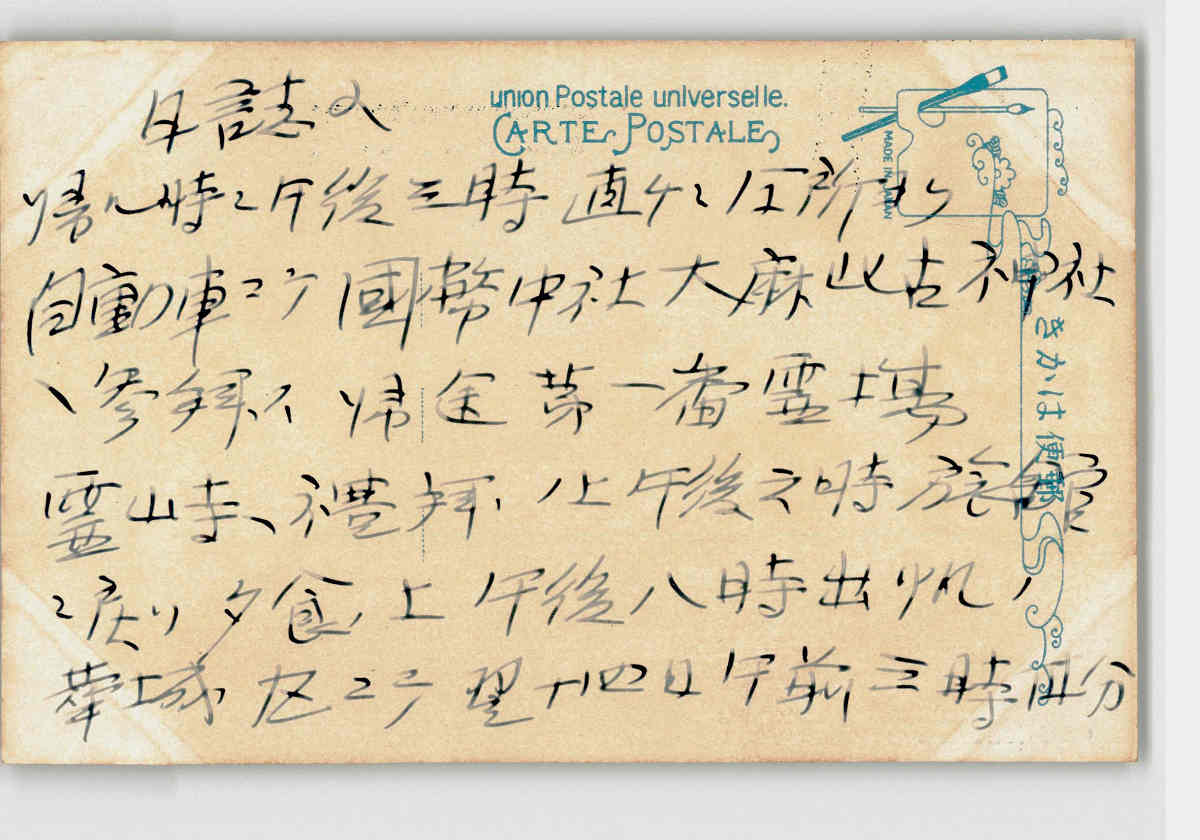 union Postale universelle.
CARTE POSTALE
MADE IN JAPAN
きかは便郵
日誌
帰 時 午後三時直 所
自動車ニテ國幣中社大麻比古神社
参拝 帰途第一番霊場
霊山寺、礼拝 午後 時旅館
ニ戻リ夕食 上午後八時出帆ノ
華城丸ニテ翌十四日午前三時 分